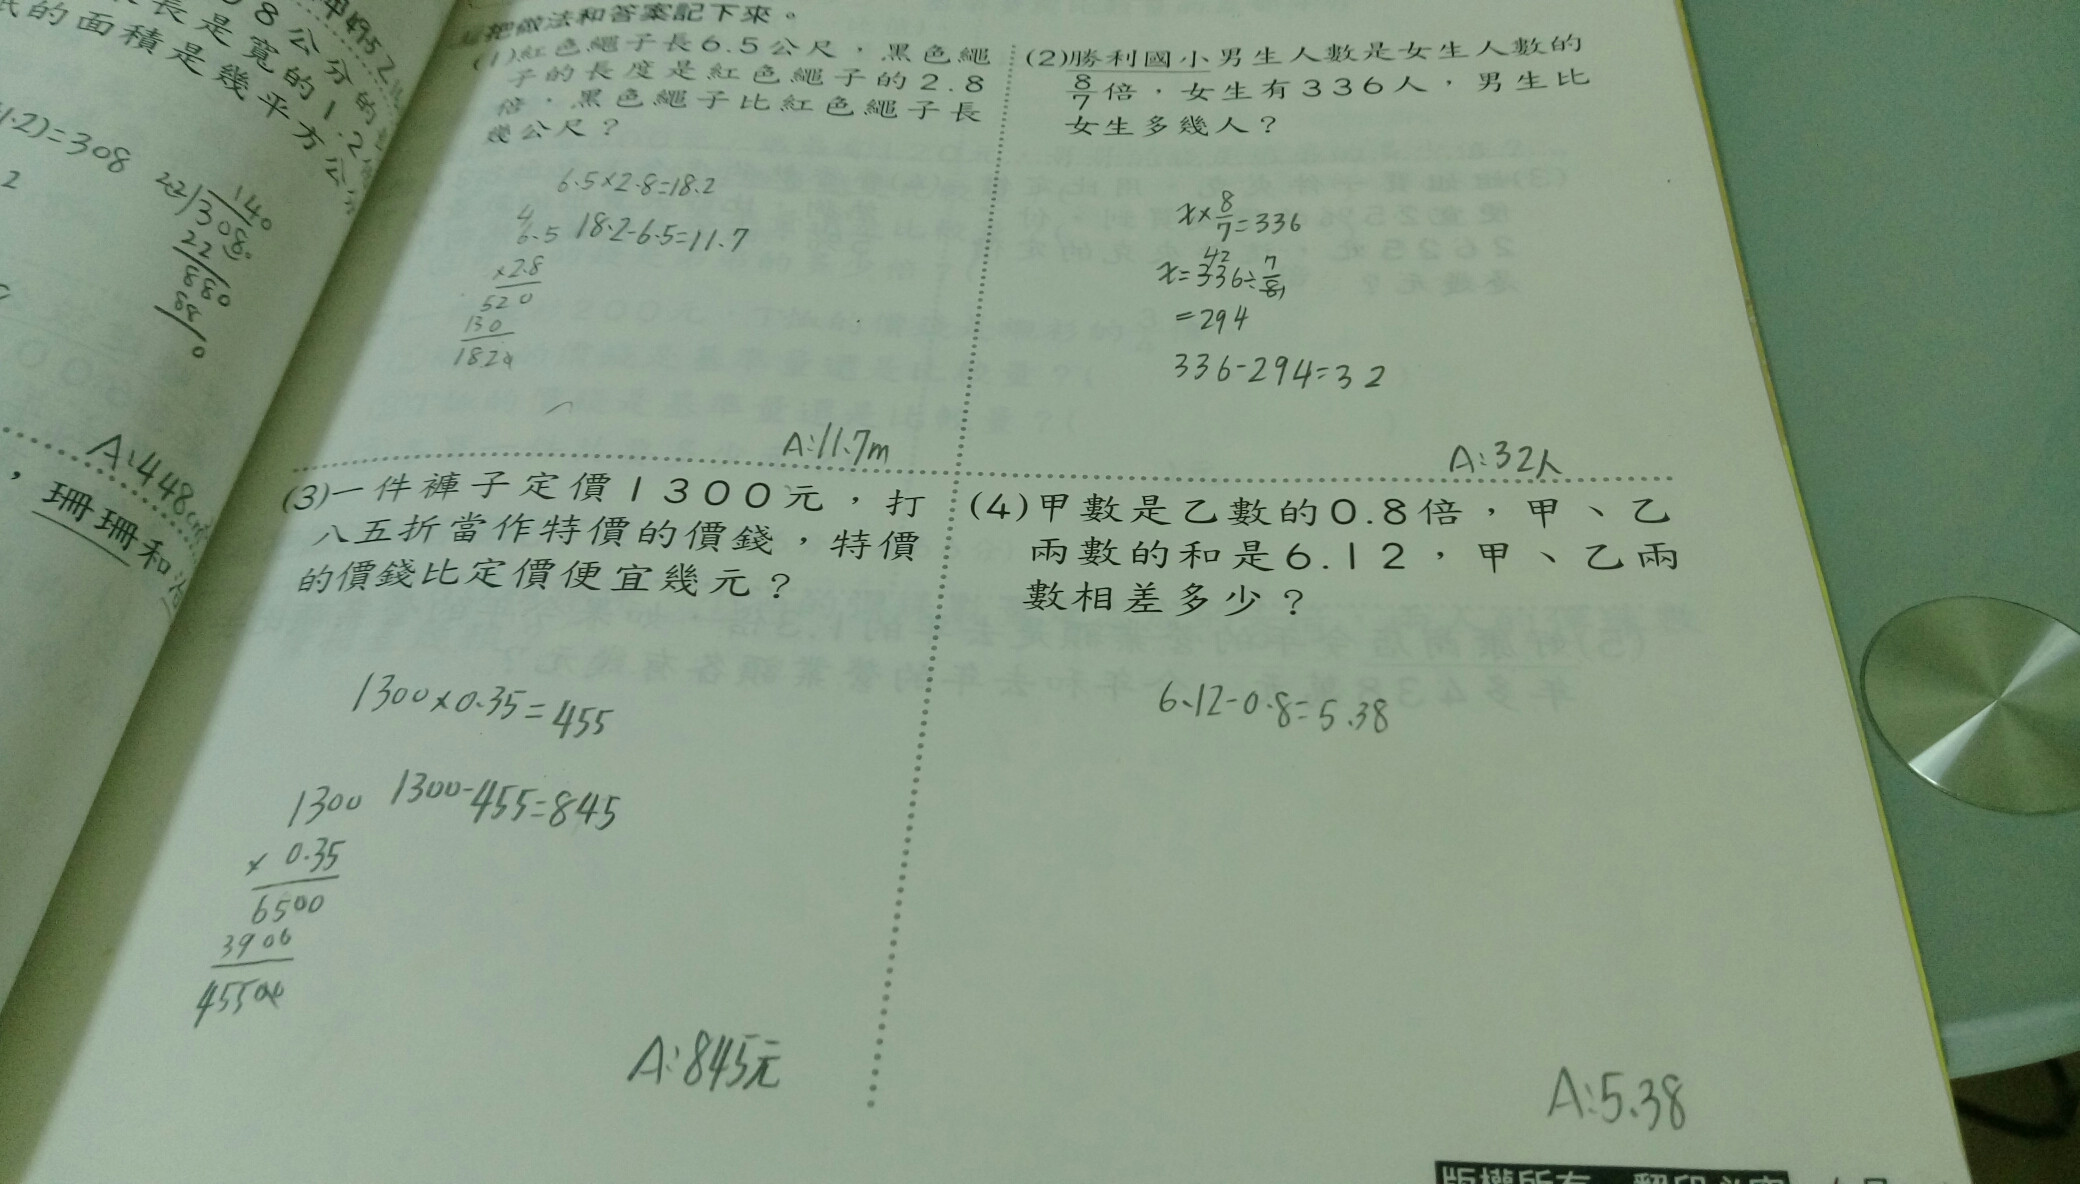 甲495乙
8公分的
長是寬的1.2
的面積是幾平方公
1.2)=308
2
140
2.2)308
22
880
88
0
A:448cm²
，珊珊和
把做法和答案記下來。
(1)紅色繩子長6.5公尺，黑色繩
子的長度是紅色繩子的2.8
倍，黑色繩子比紅色繩子長
幾公尺？
6.5×2.8=18.2
4
6.5
18.2-6.5=11.7
×2.8
520
130
18.20
A:11.7m
(2)勝利國小男生人數是女生人數的
8/7倍，女生有336人，男生比
女生多幾人？
x×8/7=336
42
x=336÷7/8
=294
336-294=32
A:32人
(3)一件褲子定價1300元，打
八五折當作特價的價錢，特價
的價錢比定價便宜幾元？
1300×0.35=455
1300
1300-455=845
× 0.35
6500
3900
45500
A:845元
(4)甲數是乙數的0.8倍，甲、乙
兩數的和是6.12，甲、乙兩
數相差多少？
6.12-0.8=5.38
A:5.38
版權所有